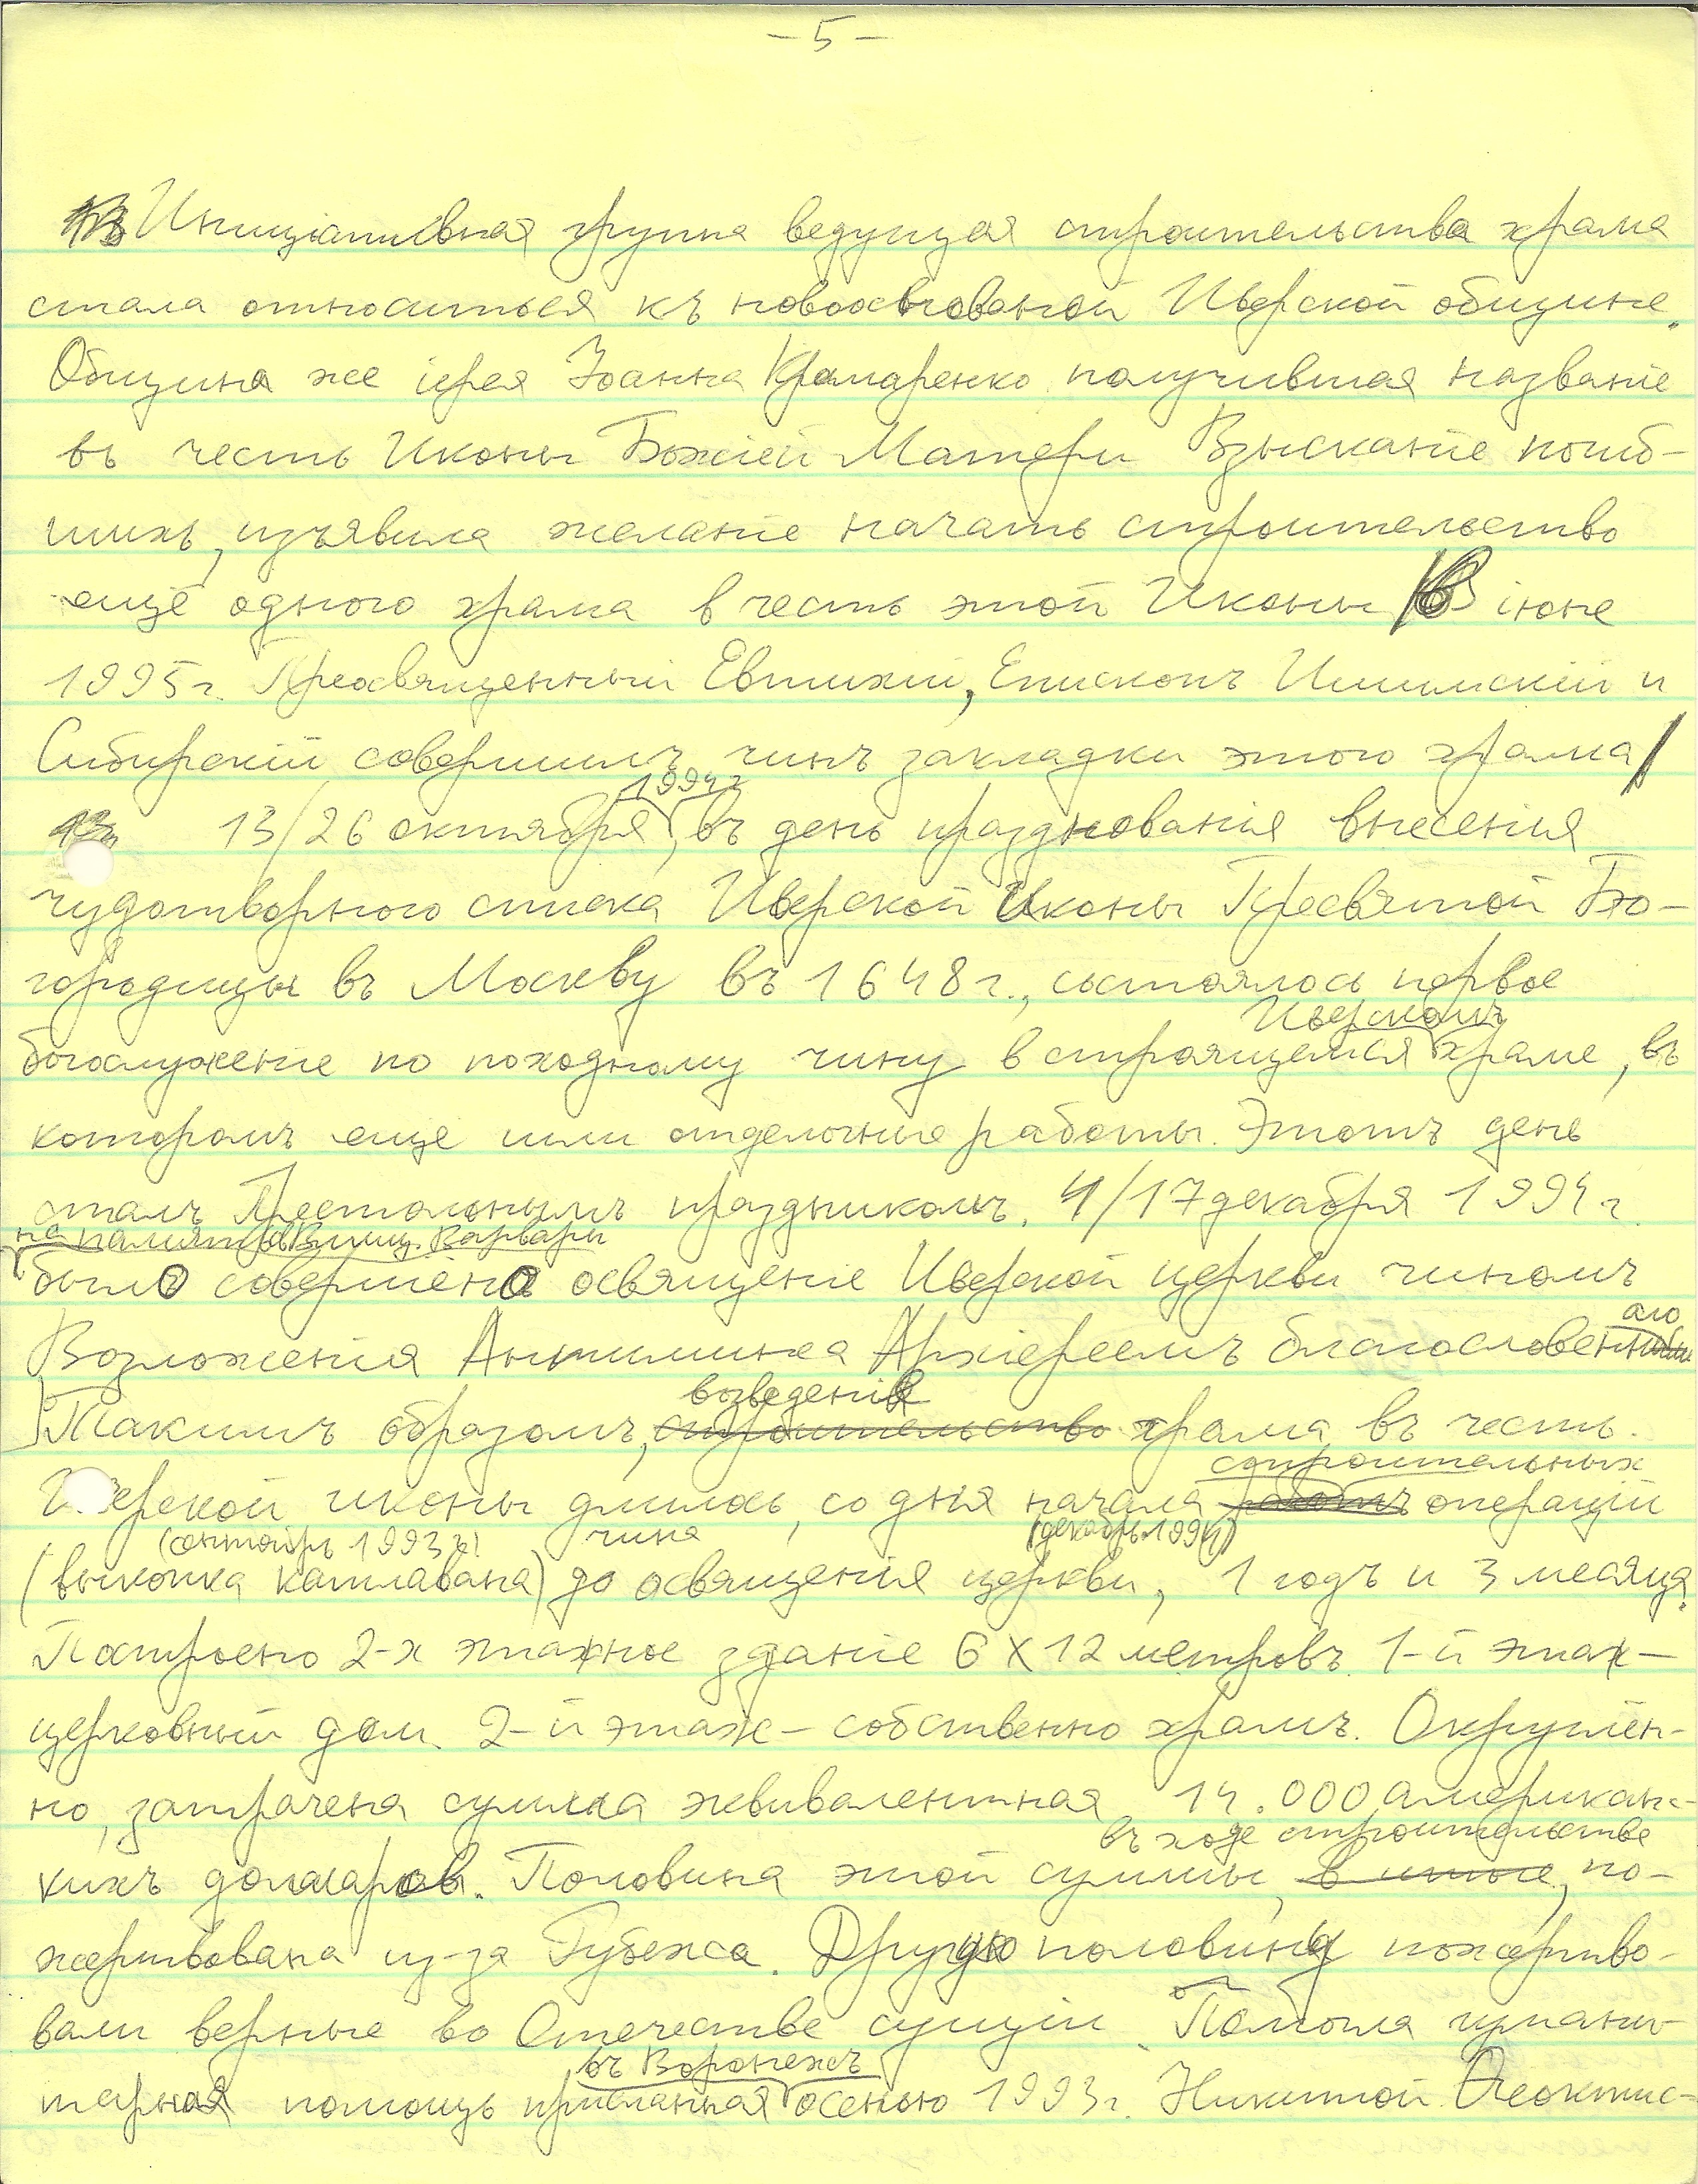 - 5 -
Инициативная группа ведущая строительства храма
стала относиться къ новооснованой Иверской общине.
Община же іерея Іоанна Крамаренко получившая названіе
въ честь Иконы Божіей Матери Взысканіе погиб-
шихъ, изъявила желаніе начать строительство
ещё одного храма в честь этой Иконы / В июне
1995 г. Преосвященный Евтихій, Епископъ Ишимскій и
Сибирскій совершилъ чинъ закладки этого храма /
1994 г
13/26 октября, въ день празднованія внесенія
чудотворного списка Иверской Иконы Пресвятой Бо-
городицы въ Москву въ 1648 г., состоялось первое
Иверскомъ
богослуженіе по походному чину в строящемся храме, въ
которомъ еще шли отделочные работы. Этотъ день
сталъ Престольнымъ праздникомъ. 4/17 декабря 1994 г.
на память Вмц. Варвары
было совершено освященіе Иверской церкви чиномъ
аго
Возложенія Антиминса Архіереемъ благословенн
возведеніе
Такимъ образомъ, строительство храма въ честь
строительных
Иверской иконы длилось, со дня начала работъ операций
(сентябрь 1993 г) чина (декабрь 1994)
(выкопка катлавана) до освященія церкви, 1 годъ и 3 месяца.
Построено 2-х этажное зданіе 6 х 12 метровъ. 1-й этаж -
церковный дом. 2-й этаж - собственно храмъ. Округлён-
но, затрачена сумма эквивалентная 14.000 американс-
въ ходе строительстве
кихъ долларов. Половина этой суммы, , по-
жертвована из-за Рубежа. Другую половину пожертво-
вали верные во Отечестве сущіи. Помогла гумани-
въ Воронежъ
тарная помощь присланная осенью 1993 г. Никитой Феоктис-